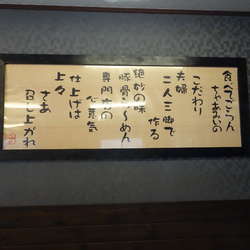 食べてごらん
ちゃあみいの
こだわり
夫婦
二人三脚で
作る
絶妙の味
豚骨らーめん
専門店の
心意気
仕上げは
上々
さあ
召し上がれ